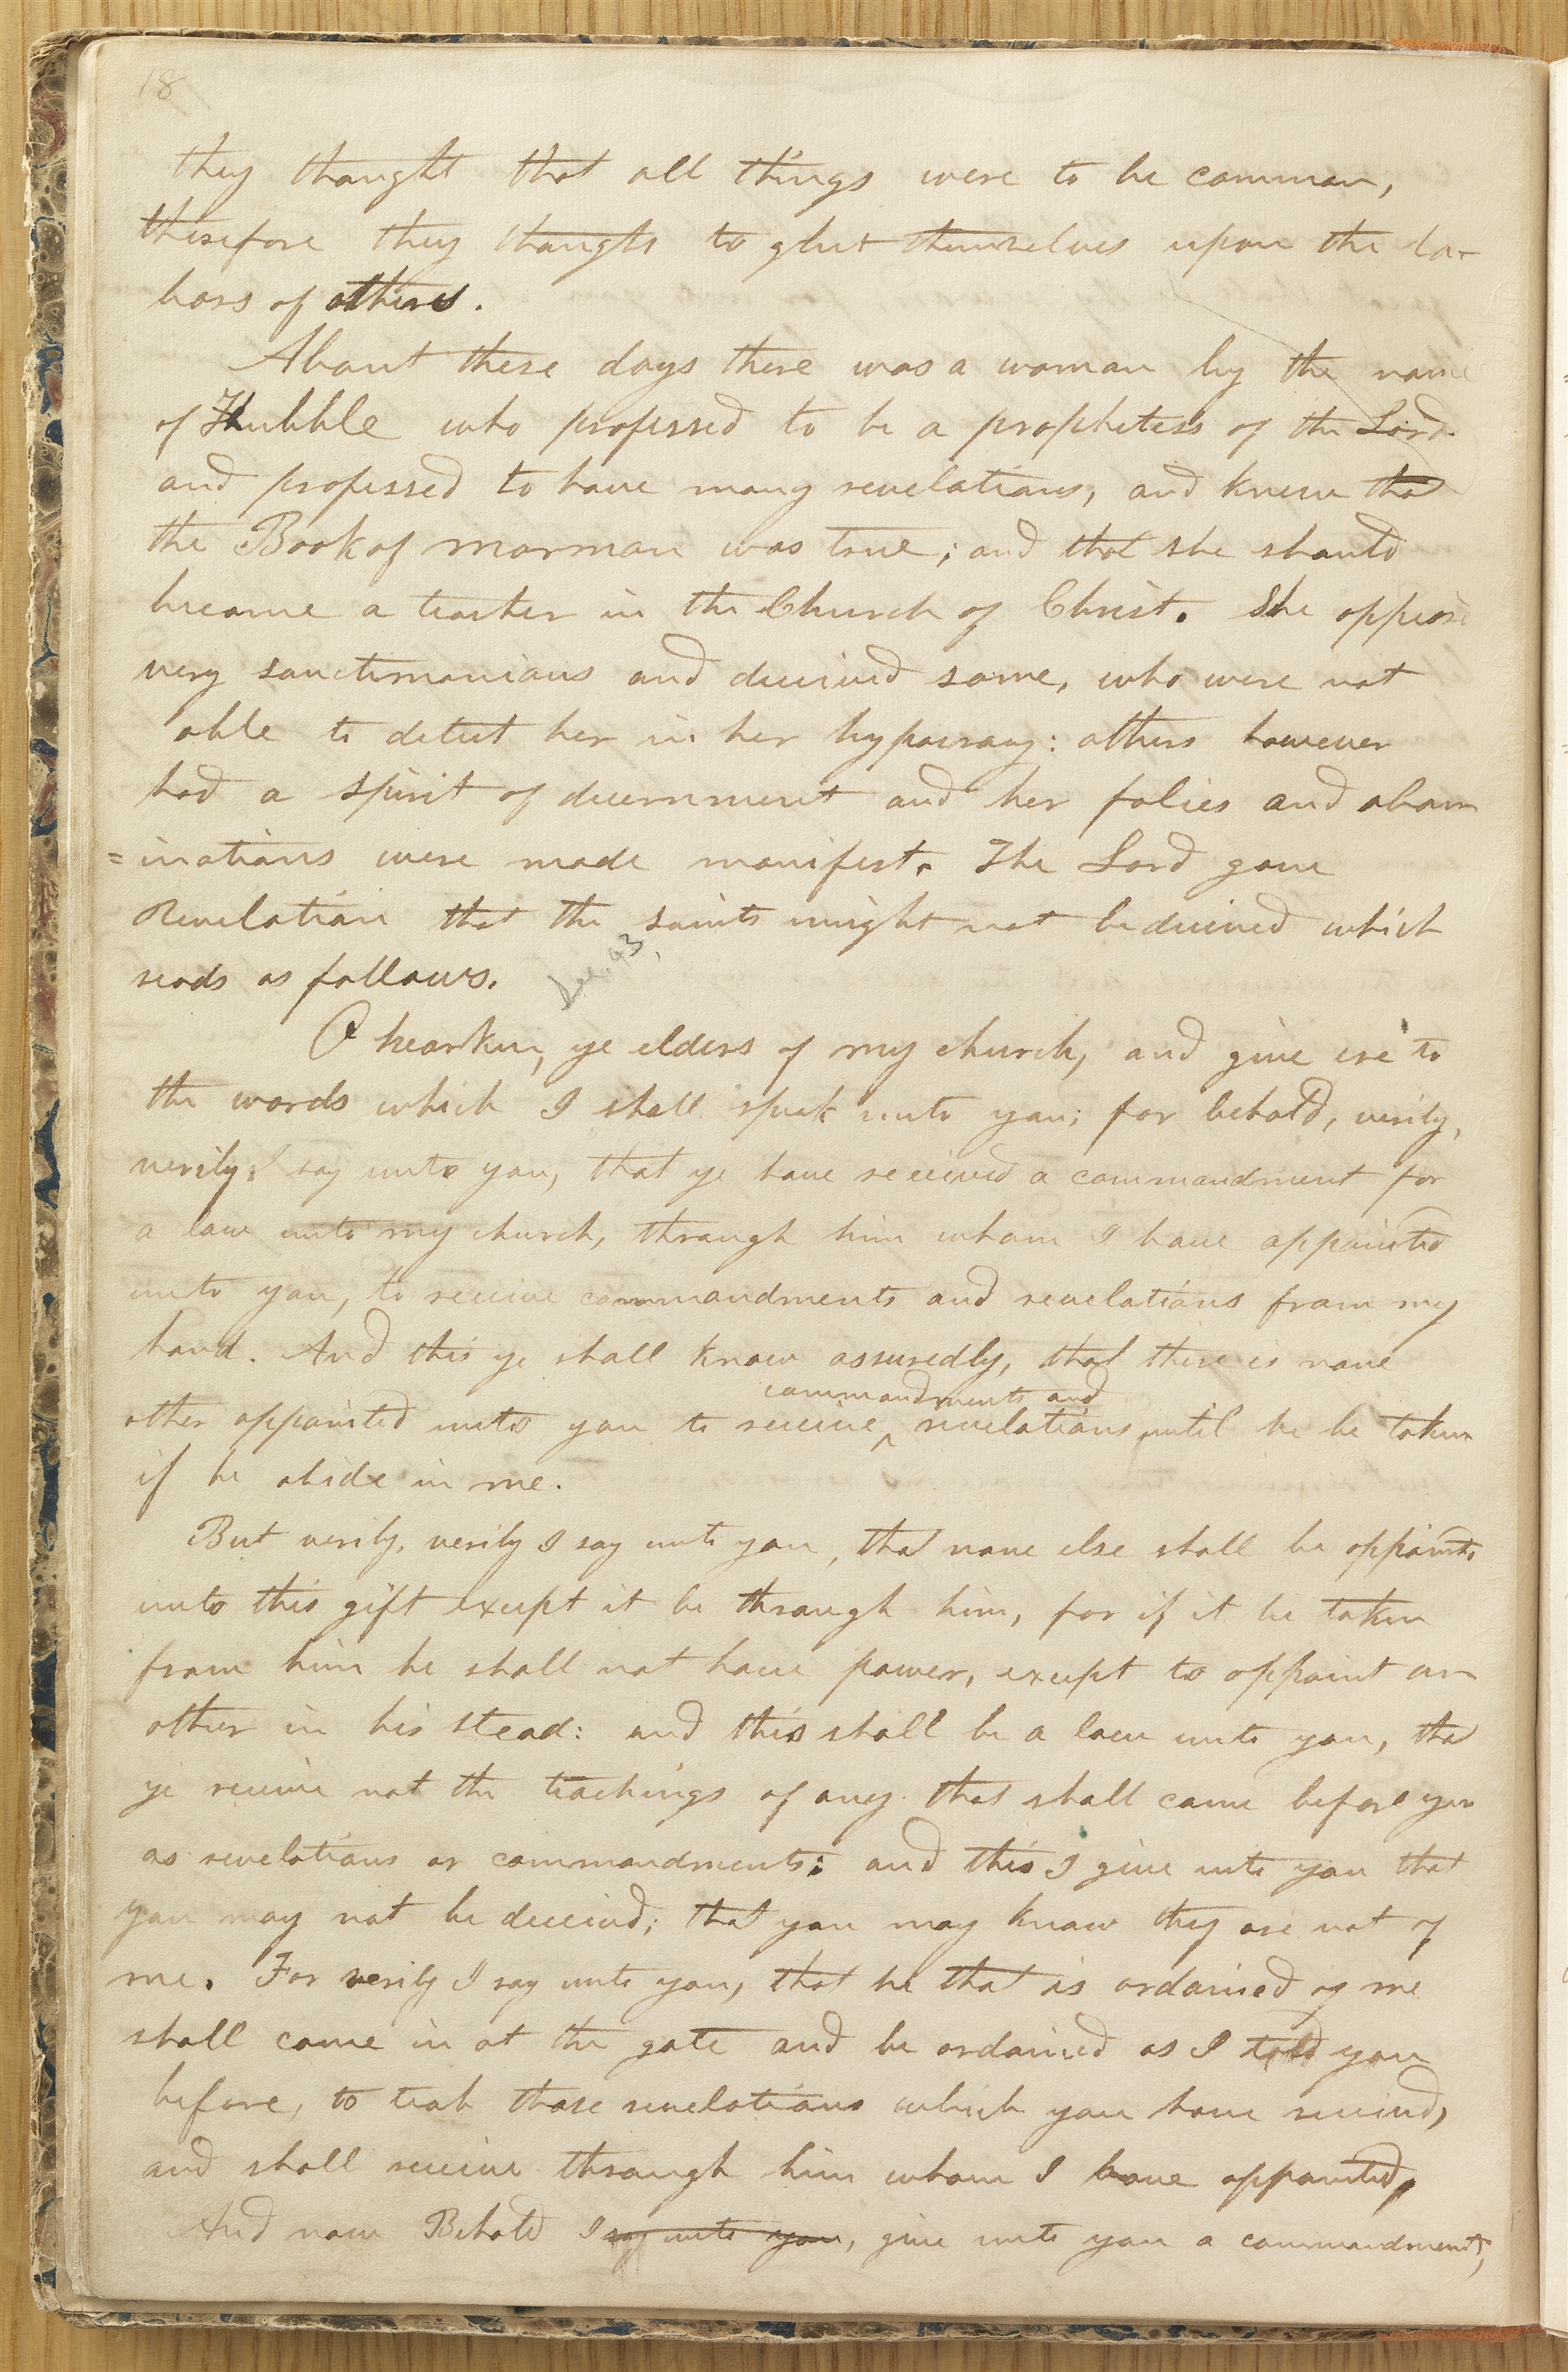 18
they thought that all things were to be common,
therefore they thought to glut themselves upon the la-
bors of others.
About these days there was a woman by the name
of Hubble who professed to be a prophetess of the Lord.
and professed to have many revelations, and knew that
the Book of mormon was true; and that she should
become a teacher in the Church of Christ. She appeard
very sanctimonious and deceived some, who were not
able to detect her in her hypocracy: others however
had a spirit of decernment and her folies and abom
=inations were made manifest. The Lord gave
Revelation that the saints might not be deceived which
reads as follows.
Sec. 43,
O hearken, ye elders of my church, and give ere to
the words which I shall speak unto you; for behold, verily,
verily I say unto you, that ye have received a commandment for
a law unto my church, through him whom I have appointed
unto you, to receive commandments and revelations from my
hand. And this ye shall know assuredly, that there is none
commandments and
other appointed unto you to receive ^ revelations until he be taken
if he abide in me.
But verily, verily I say unto you, that none else shall be appointed
unto this gift except it be through him, for if it be taken
from him he shall not have power, except to appoint an
other in his stead: and this shall be a law unto you, that
ye receive not the teachings of any that shall come before you
as revelations or commandments: and this I give unto you that
you may not be deceived; that you may know they are not of
me. For verily I say unto you, that he that is ordained of me
shall come in at the gate and be ordained as I told you
before, to teach those revelations which you have received,
and shall receive through him whom I have appointed.
And now Behold I say unto you, give unto you a commandment,